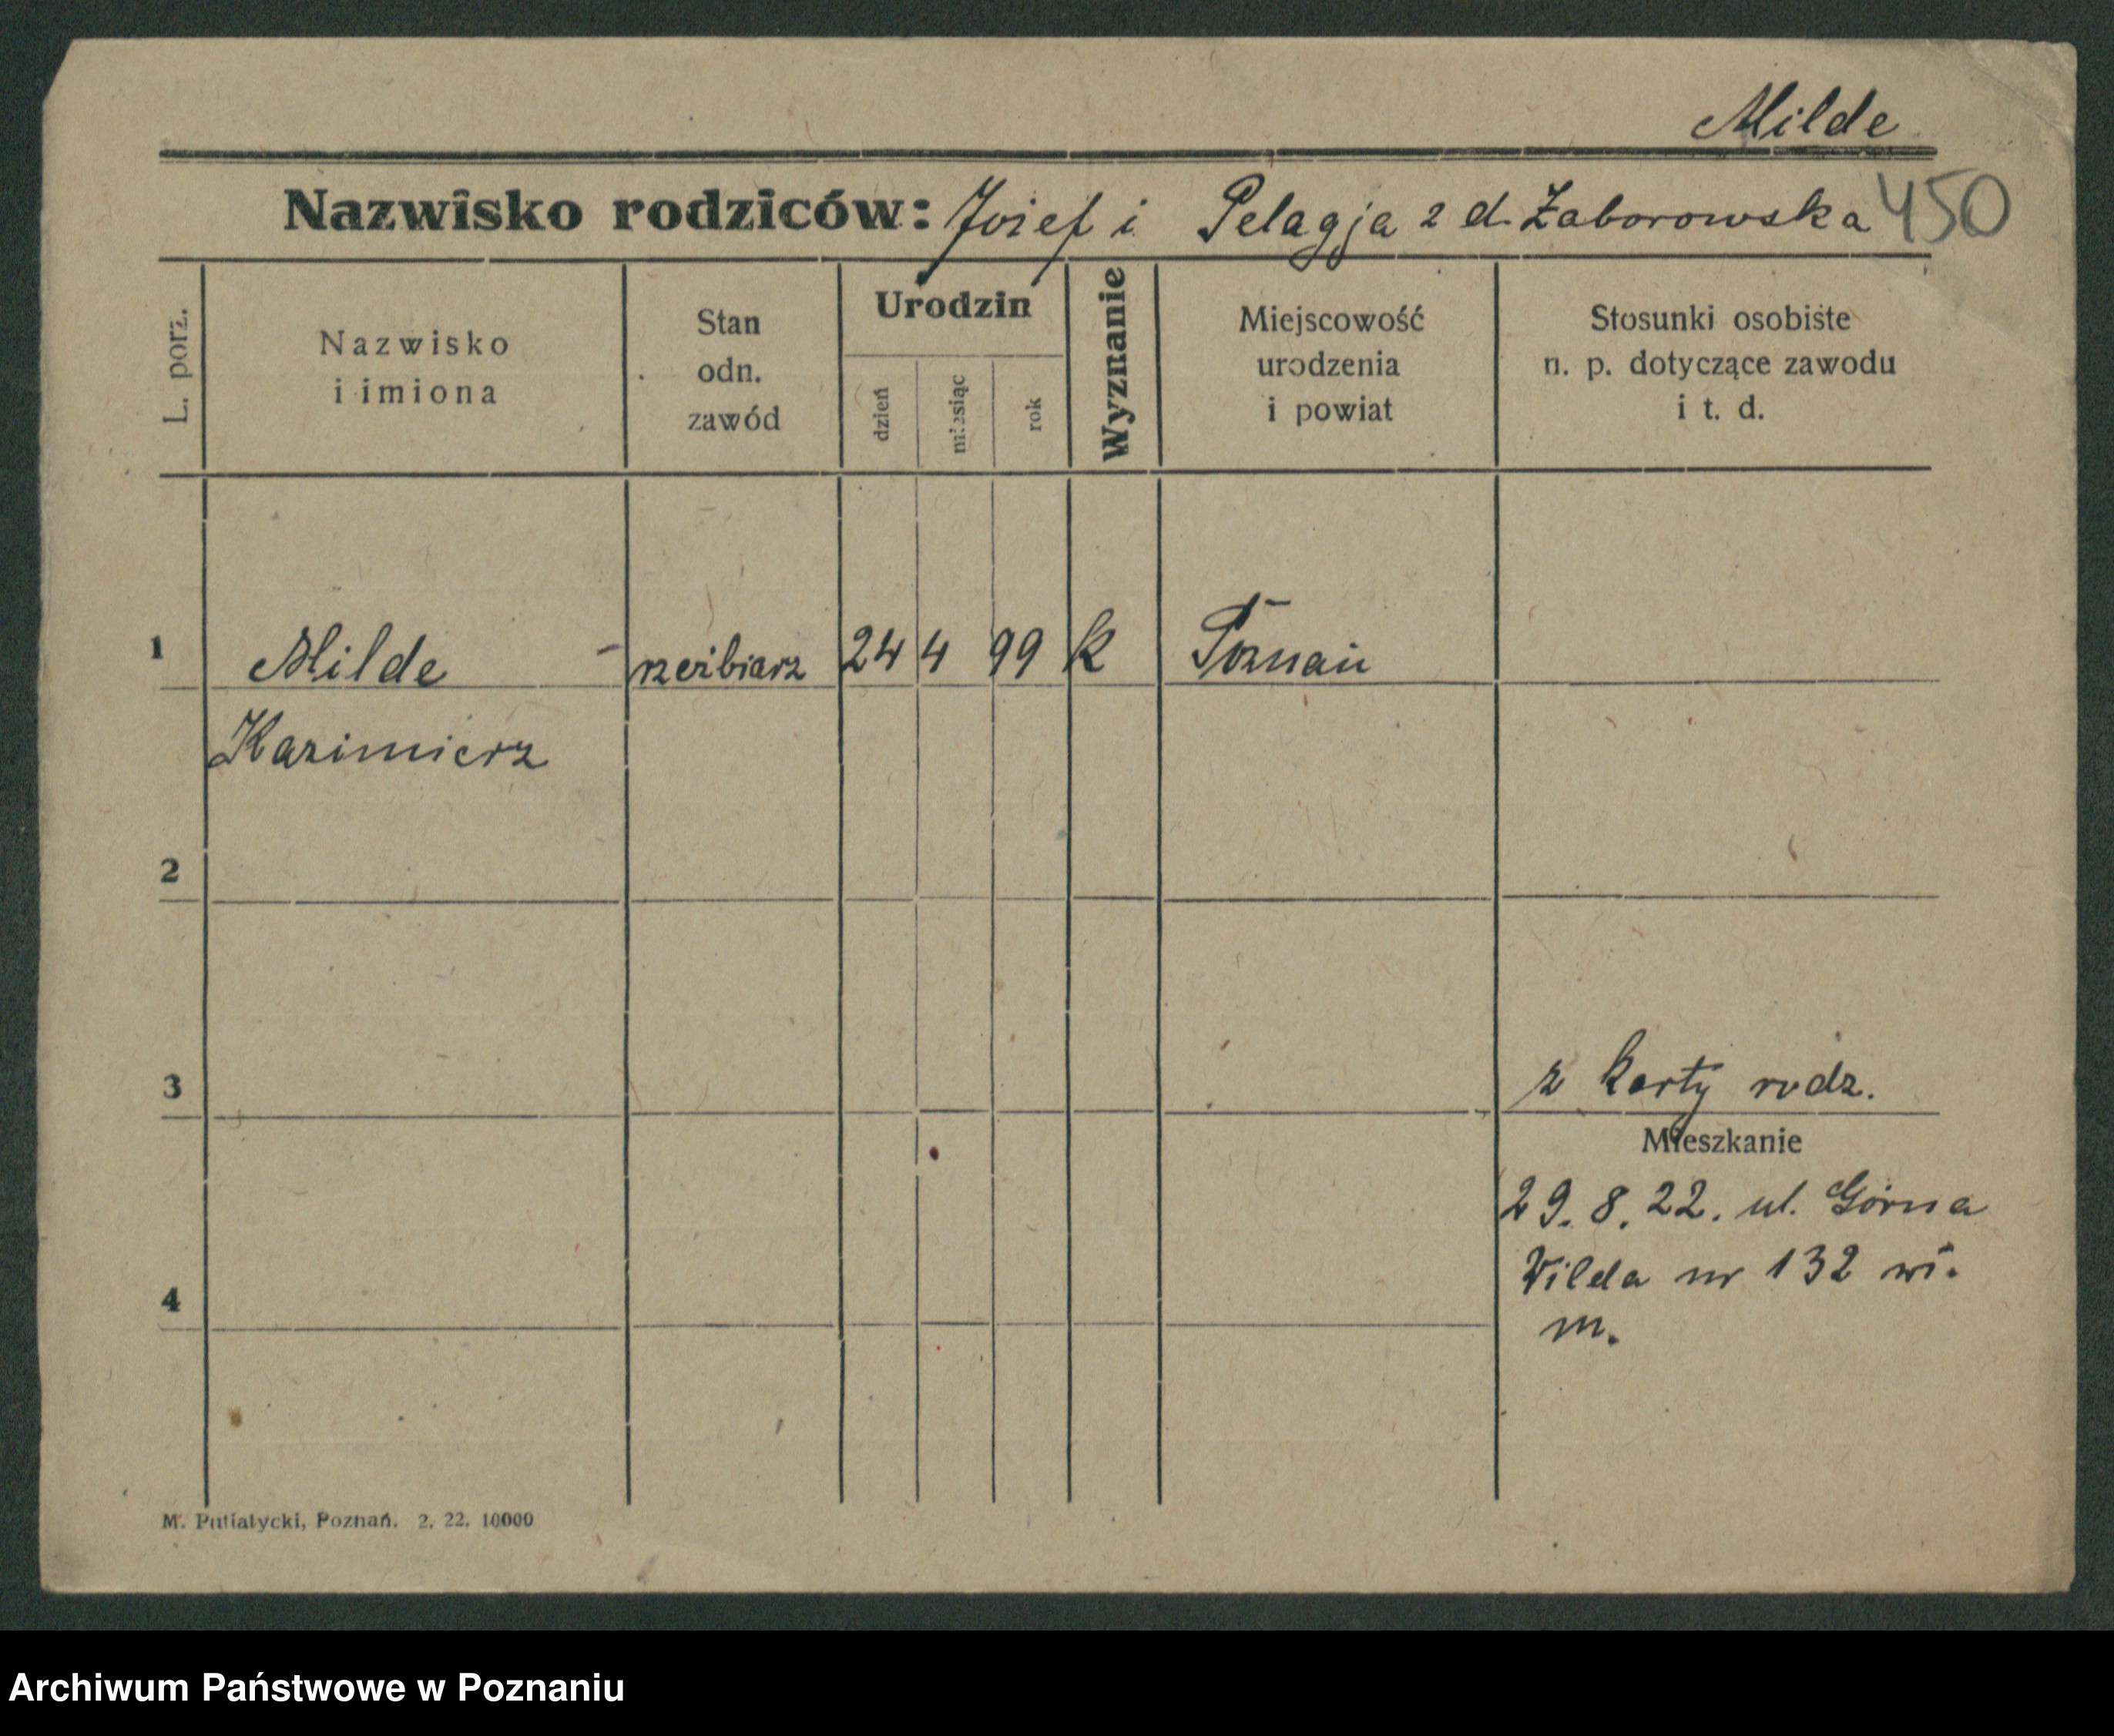 Milde
Nazwisko rodziców: Józef i Pelagja z d. Zaborowska 450
L. porz.
Nazwisko
i imiona
Stan
odn.
zawód
Urodzin
dzień
miesiąc
rok
Wyznanie
Miejscowość
urodzenia
i powiat
Stosunki osobiste
n. p. dotyczące zawodu
i t. d.
1 Milde rzeźbiarz 24 4 99 k Poznań
Kazimierz
2
3 z karty rodz.
Mieszkanie
29. 8. 22. ul. Górna
Wilda nr 132
4
m.
M. Putiatycki, Poznań. 2. 22. 10000
Archiwum Państwowe w Poznaniu